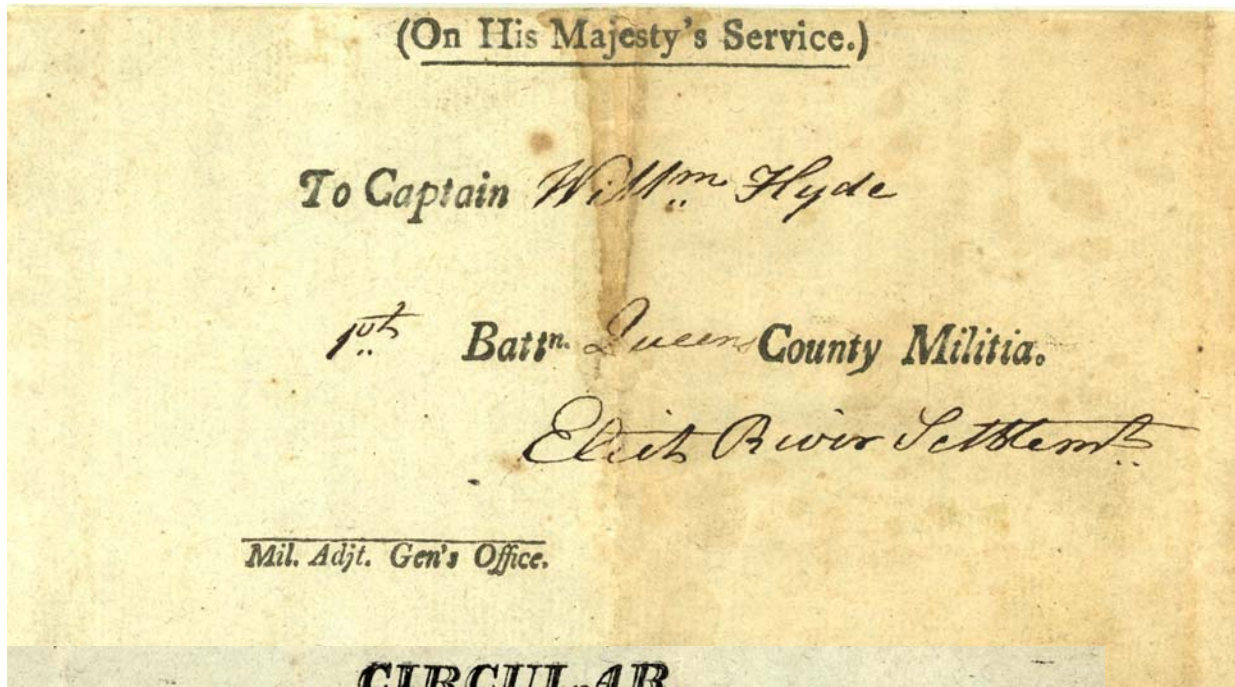 (On His Majesty's Service.)
To Captain Willm Hyde
1st Battn. Queens County Militia.
Eliot River Settlemt
Mil. Adjt. Gen's Office.
CIRCULAR